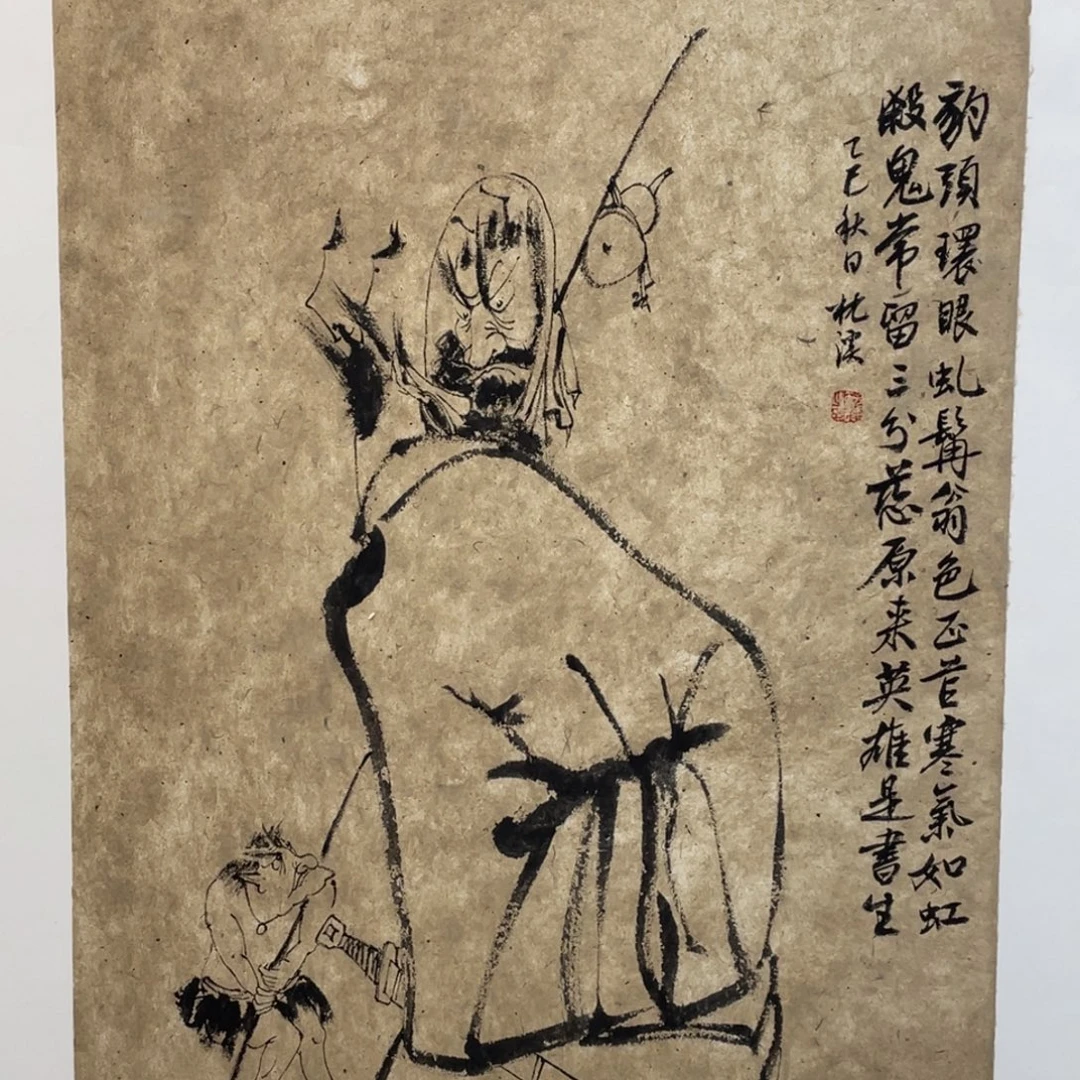 豹頭環眼虬髯翁色正芒寒氣如虹
殺鬼常留三分慈原來英雄是書生
乙巳秋日